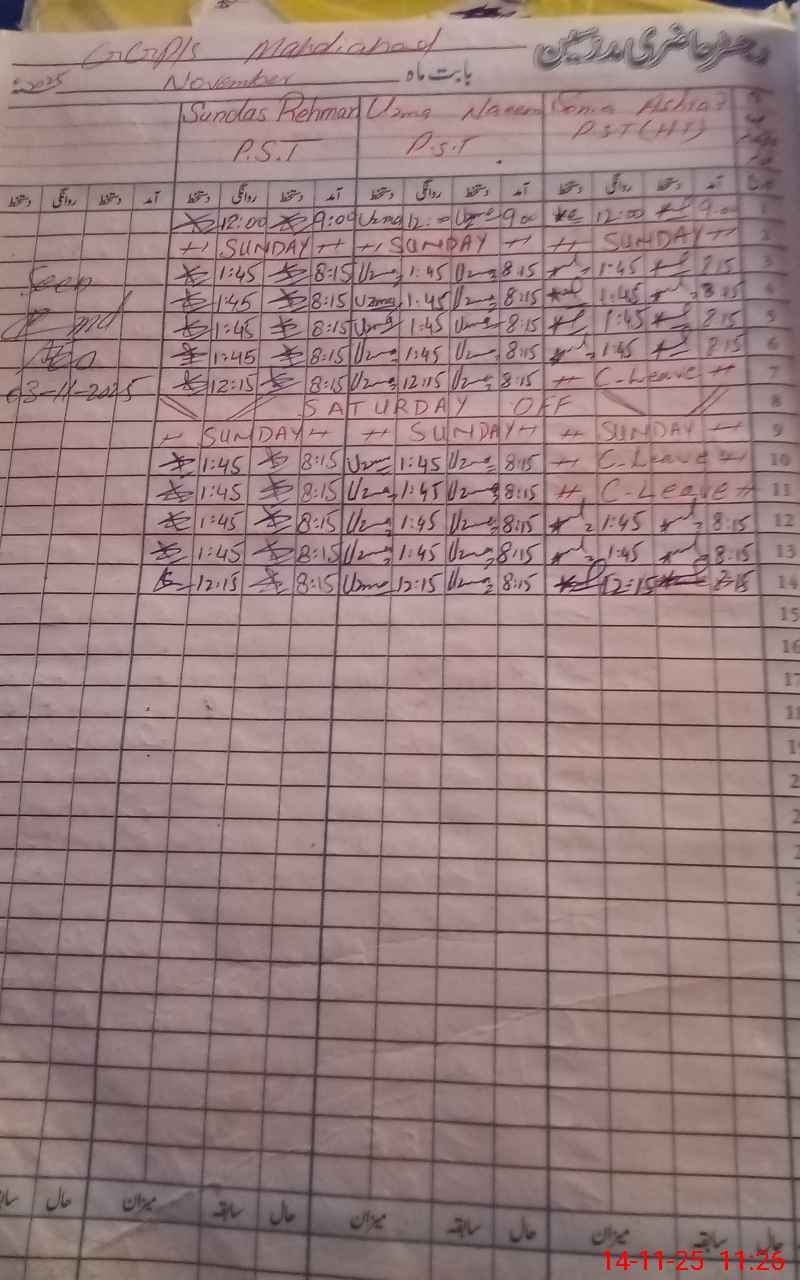 رجسٹر حاضری مدرسین
GGPS Mahdiabad
بابت ماہ November 2025
Sundas Rehman Uzma Naeem Ashraf
P.S.T P.S.T P.S.T (HT)
دستخط روانگی دستخط آمد دستخط روانگی دستخط آمد دستخط روانگی دستخط آمد دستخط روانگی دستخط آمد
12:00 9:00 Uzma 12:00 Uzma 9:00 12:00 9:00 1
SUNDAY SUNDAY SUNDAY 2
Seen 1:45 8:15 Uzma 1:45 Uzma 8:15 1:45 8:15 3
1:45 8:15 Uzma 1:45 Uzma 8:15 1:45 8:15 4
1:45 8:15 Uzma 1:45 Uzma 8:15 1:45 8:15 5
1:45 8:15 Uzma 1:45 Uzma 8:15 1:45 8:15 6
03-11-2025 12:15 8:15 Uzma 12:15 Uzma 8:15 C-Leave 7
SATURDAY OFF 8
SUNDAY SUNDAY SUNDAY 9
1:45 8:15 Uzma 1:45 Uzma 8:15 C-Leave 10
1:45 8:15 Uzma 1:45 Uzma 8:15 C-Leave 11
1:45 8:15 Uzma 1:45 Uzma 8:15 1:45 8:15 12
1:45 8:15 Uzma 1:45 Uzma 8:15 1:45 8:15 13
12:15 8:15 Uzma 12:15 Uzma 8:15 12:15 8:15 14
15
16
حال میزان سابقہ حال میزان سابقہ حال میزان سابقہ حال
14-11-25 11:26